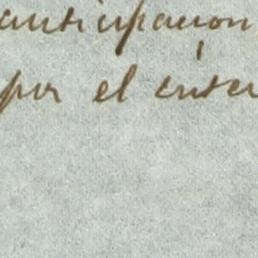 anticipacion
por el enter